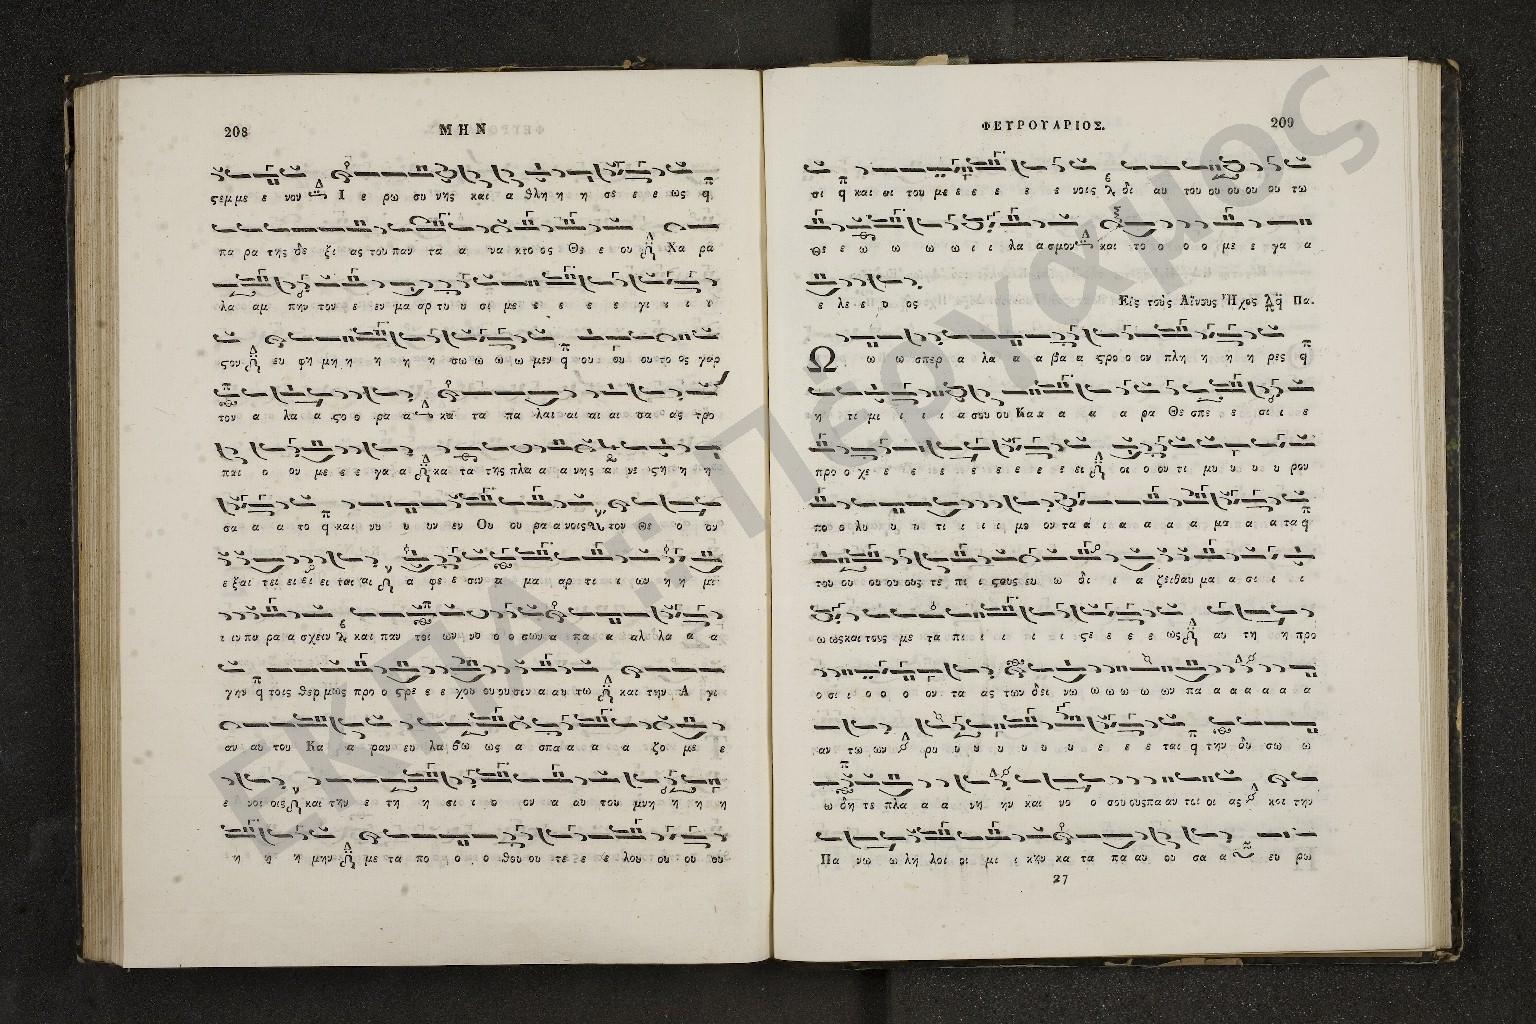 208
ΜΗΝ
ςεμ με ε νον Ι ε ρω συ νης και α θλη η η σε ε ε ως
πα ρα της δε ξι ας του παν τα α να κτο ος Θε ε ου Χα ρα
λα αμ πην τον ε εν μα αρ τυ υ σι με ε ε ε ε γι ι ι ι
ςου ευ φη μη η η η η σω ω ω ω μεν ου ου ου το ος γαρ
τον α λα α ςο ο ρα α κα τα πα λαι αι αι αι σα ας τρο
παι ο ον με ε ε γα α κα τα της πλα α α νης α νε ςη η η
σα α α το και νυ υ υν εν Ου ου ρα α νοις τον Θε ο ον
ε ξαι τει ει ει ει ται αι α φε ε σιν α μα αρ τι ι ων η η μι
ι ιν πα ρα α σχειν και παν τοι ων νο ο ο σων α πα α αλ λα α α
γην τοις θερ μως προ ο ςρε ε ε χου ου ου σιν α αυ τω και την Α γι
αν αυ του Κα α ραν ευ λα βω ως α σπα α α α ζο με ε
ε νοι οις και την ε τη η σι ι ο ον α αυ του μνη η η η
η η η μην με τα πο ο ο ο θου ου τε ε ε λου ου ου ου
ΦΕΥΡΟΥΑΡΙΟΣ.
209
σι και οι του με ε ε ε ε ε νοις δι αυ του ου ου ου ου τω
Θε ε ω ω ω ω ι ι λα α σμου και το ο ο ο με ε ε γα α
ε λε ε ο ος
Εις τους Αίνους Ἦχος Πα.
Ω ω ω σπερ α λα α α βα α ςρο ο ον πλη η η η ρες
η τι μι ι ι α σου ου Κα α α α α ρα Θε σπε ε σι ι ε
προ ο χε ε ε ε ε ε ε ε ε ει οι ο ον τι μυ υ υ υ ρου
πο ο λυ υ υ τι ι ι ι μο ον τα α ι α α α α μα α α τα
του ου ου ου ους τε πι ι ςους ευ ω δι ι α ζει θαυ μα α σι ι ι
ω ως και τους με τα πι ι ι ι ι ςε ε ε ε ως αυ τη η προ
ο σι ι ο ο ο ον τα ας των δει νω ω ω ω ω ων πα α α α α α
αν τω ων ρυ υ υ υ υ υ υ ε ε ε ται την ου σω ω
ω δη τε πλα α α νη ην και νο ο σου ους πα αν τοι οι ας και την
Πα νω ω λη λοι οι μι ι κην κα τα πα αυ ου σα α ευ ρω
27
ΕΚΠΑ
Πέργαμος